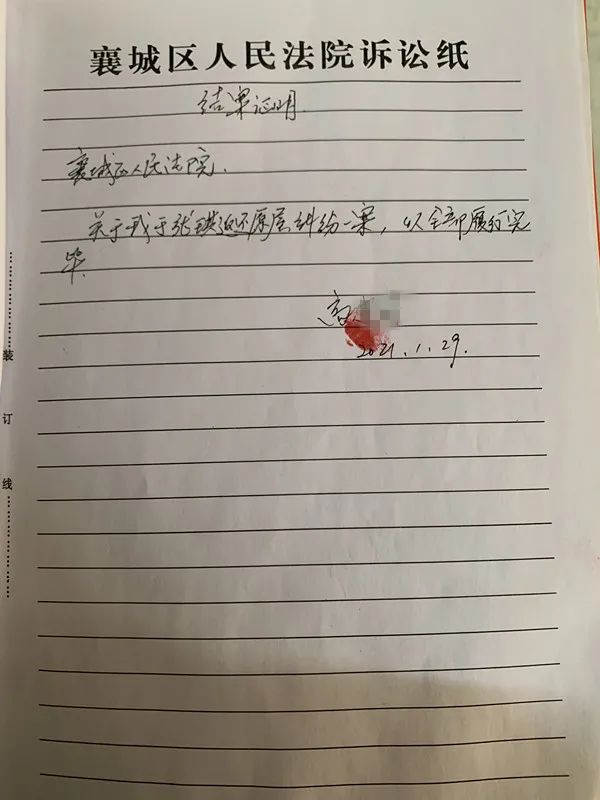 襄城区人民法院诉讼纸
结案证明.
襄城区人民法院.
关于我于张琪返还原屋纠纷一案, 以全部履行完
毕.
2021.1.29.
装
订
线